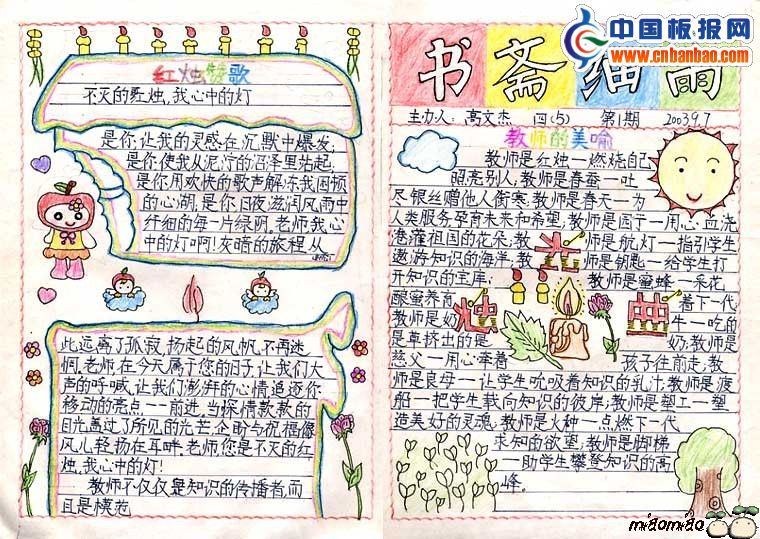 红烛颂歌
不灭的红烛,我心中的灯
是你,让我的灵感在沉默中爆发;
是你使我从泥泞的沼泽里站起;
是你用欢快的歌声解冻我困顿
的心湖,是你日夜滋润风雨中
纤细的每一片绿荫,老师,我心
中的灯啊!灰暗的旅程,从
此远离了孤寂,扬起的风帆,不再迷
惘,老师,在今天属于您的日子,让我们大
声的呼喊,让我们澎湃的心情追逐你
移动的亮点一一前进,当深情款款的
目光,高过了所见的光芒,企盼与祝福像
风儿轻扬在耳畔,老师,您是不灭的红
烛,我心中的灯!
教师不仅仅是知识的传播者,而
且是模范
中国板报网
www.cnbanbao.com
书斋细雨
主办人:高文杰 四(5) 第1期 2003 9.7
教师的美喻
教师是红烛一燃烧自己
照亮别人;教师是春蚕一吐
尽银丝赠他人衔寒;教师是春天一为
人类服务,孕育未来和希望;教师是园丁一用心血浇
灌祖国的花朵;教师是航灯一指引学生
遨游知识的海洋;教师是钥匙一给学生打
开知识的宝库;教师是蜜蜂一采花
酿蜜养育着下一代
教师是奶牛一吃的
是草挤出的是奶;教师是
慈父一用心牵着孩子往前走;教
师是良母一让学生吮吸着知识的乳汁;教师是渡
船一把学生载向知识的彼岸;教师是塑工一塑
造美好的灵魂;教师是火种一点燃下一代
求知的欲望;教师是脚梯
一助学生攀登知识的高
峰。
miaomiao